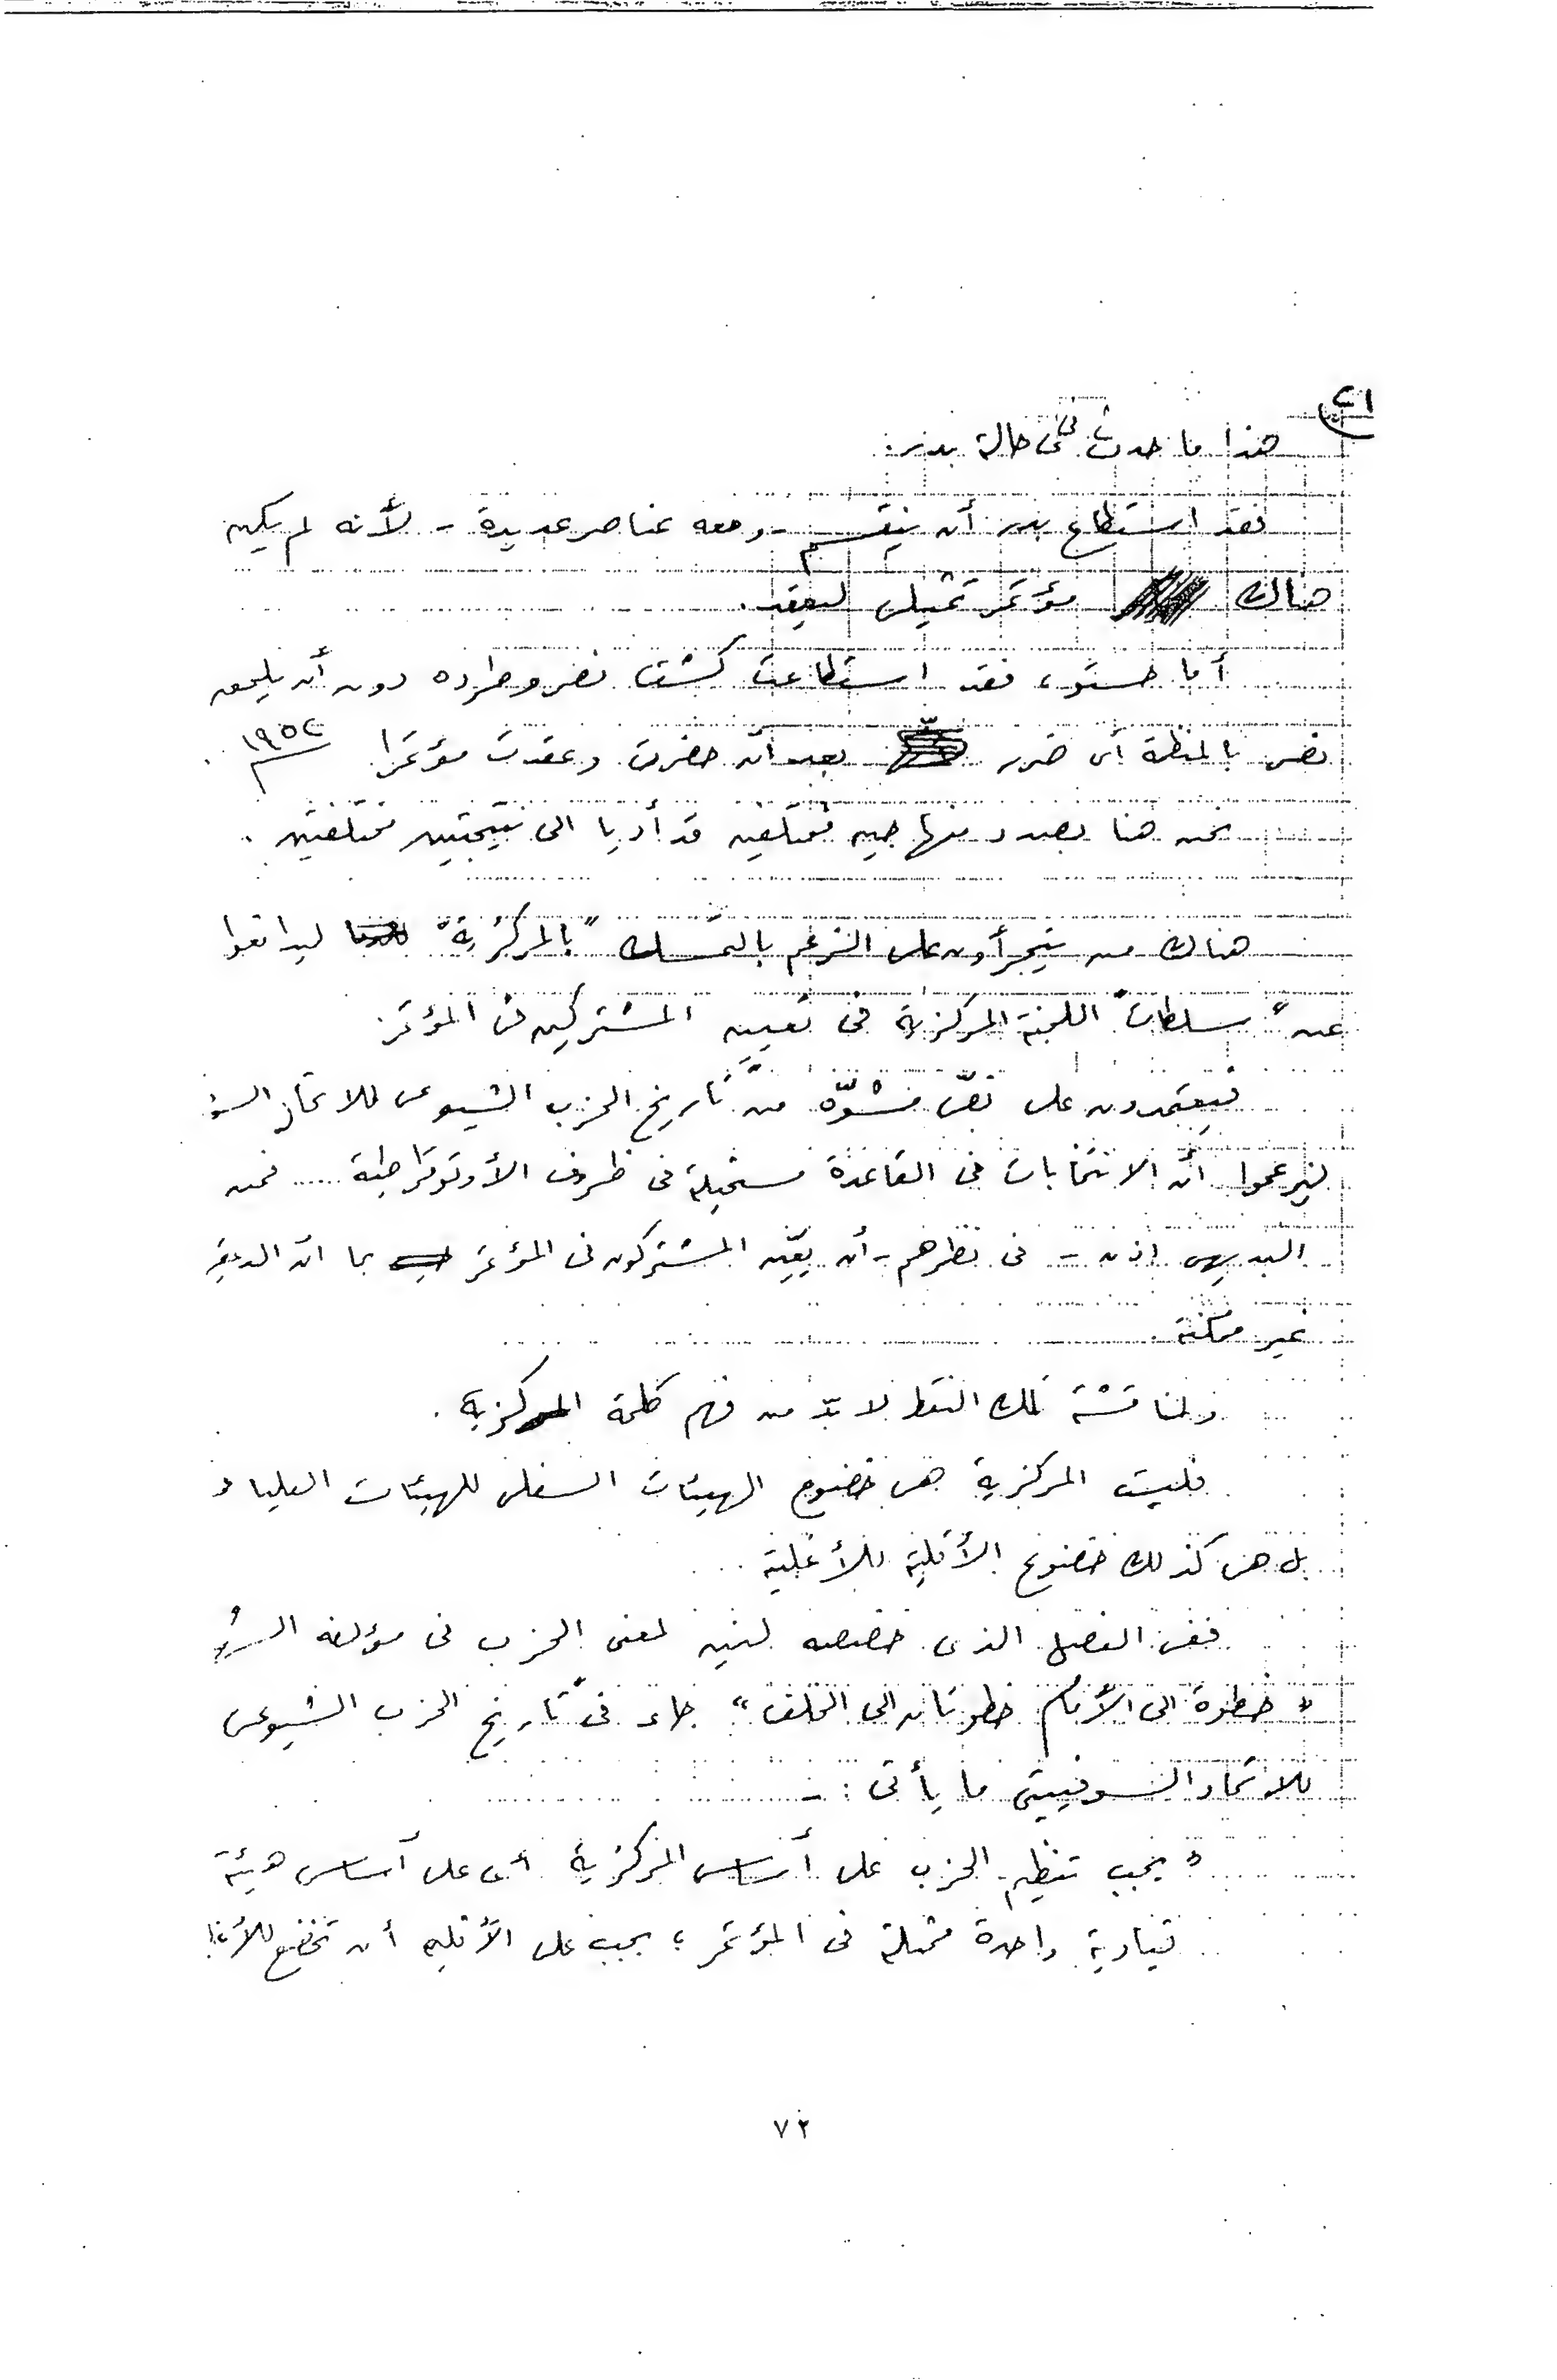 ٢١
هذا ما حدث فى حالة بدر.
فقد استطاع بدر أن ينقسم - ومعه عناصر عديدة - لأنه لم يكن
هناك مؤتمر تمثيلى ليعقد.
أما حستو، فقد استطاعت كشف نصر وطرده دون أن يلحق
نصر بالمنظمة أى ضرر بعد أن حضرت وعقدت مؤتمرا ١٩٥٢
نحن هنا بصدد منهاجين مختلفين قد أديا الى نتيجتين مختلفتين.
هناك من يتجرأون على الزعم بالتمسك "بالمركزية" ليدافعوا
عن "سلطات" اللجنة المركزية فى تعيين المشتركين فى المؤتمر
فيعتمدون على نصّ مشوّه من تاريخ الحزب الشيوعى للاتحاد السو
ليزعموا أن الانتخابات فى القاعدة مستحيلة فى ظروف الأوتوقراطية ..... فمن
البديهى إذن - فى نظرهم - أن يعيّن المشتركون فى المؤتمر بما ان
غير ممكنة.
ولمناقشة تلك النقط لا بدّ من فهم كلمة المركزية.
فليست المركزية هى خضوع الهيئات السفلى للهيئات العليا،
بل هى كذلك خضوع الأقلية للأغلبية.
ففى الفصل الذى خصصه لينين لمعنى الحزب فى مؤلفه
"خطوة الى الأمام خطوتان الى الخلف" جاء فى تاريخ الحزب الشيوعى
للاتحاد السوفييتى ما يأتى :-
"يجب تنظيم الحزب على أساس المركزية أى على أساس هيئة
قيادية واحدة ممثلة فى المؤتمر ؛ يجب على الأقلية أن تخضع
٧٢